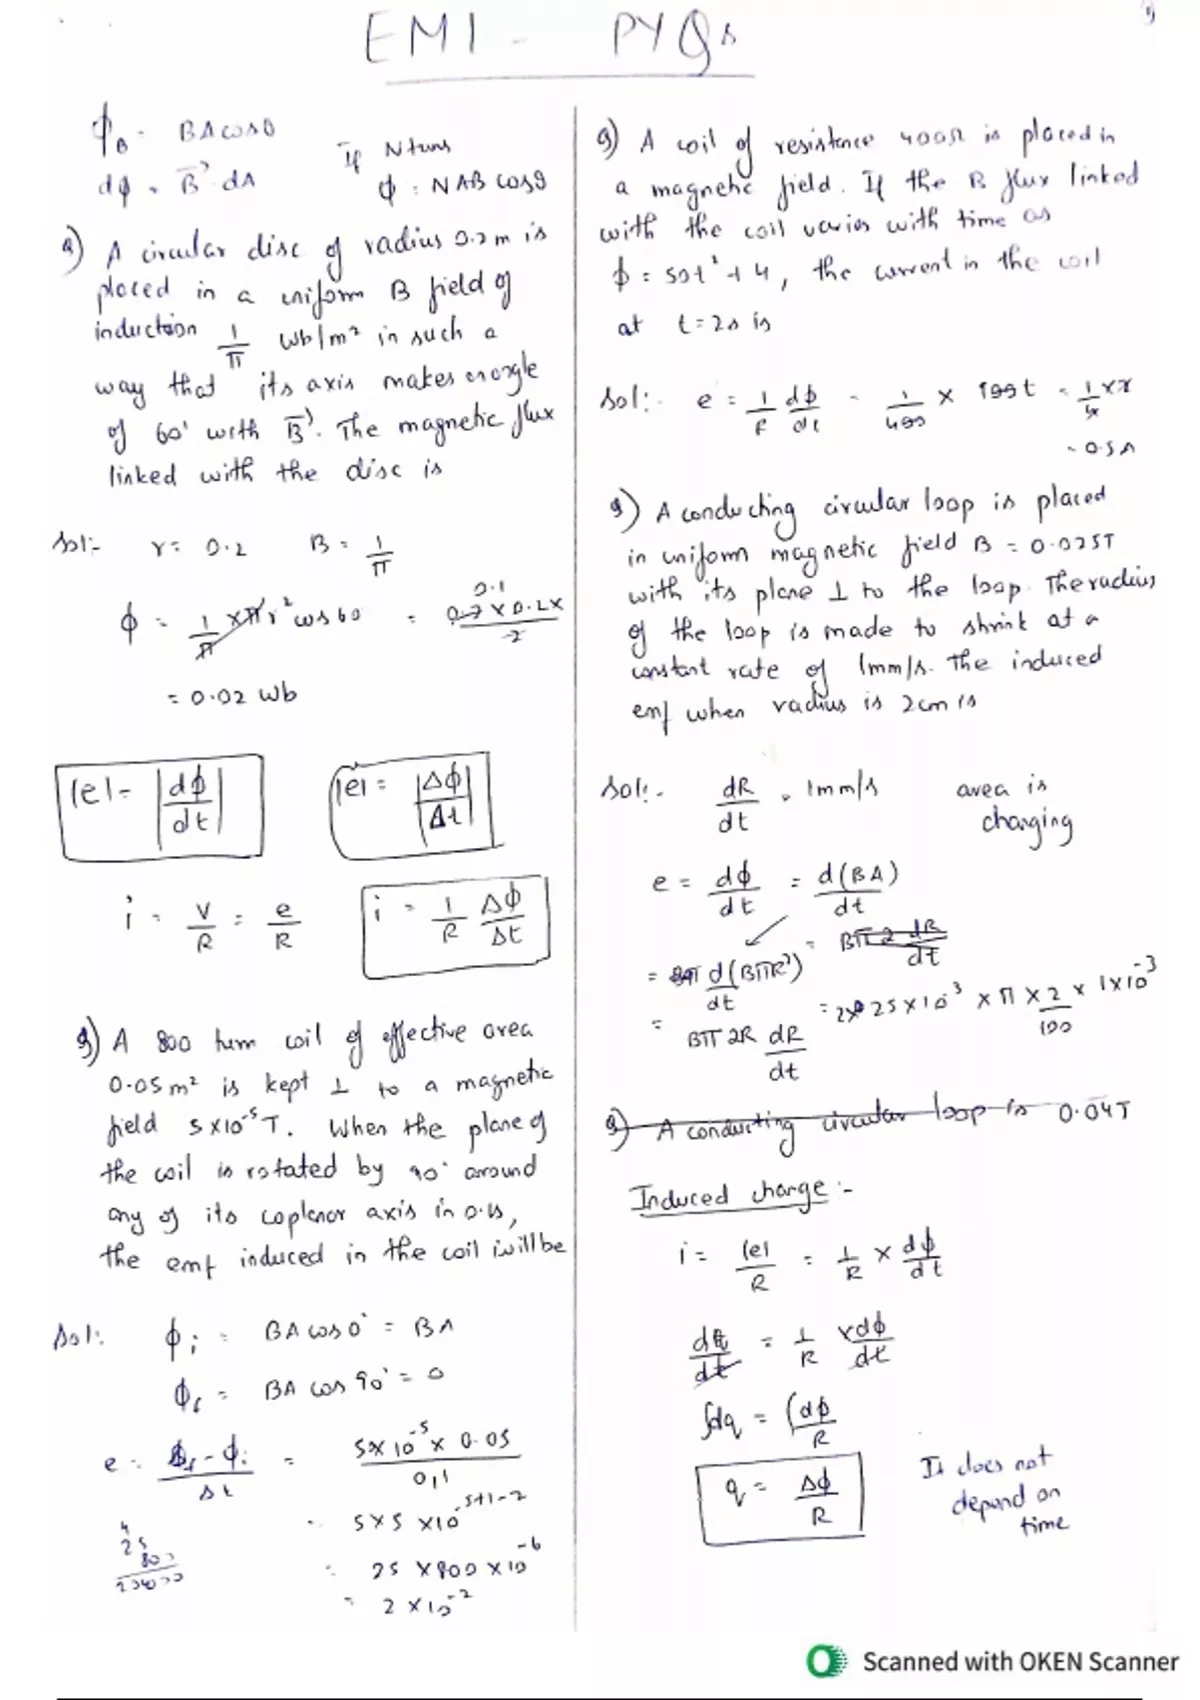 EMI - PYQs
ϕ_B = BA cosθ
dϕ = B⃗ · dA
If N turns
ϕ = NAB cosθ
Q) A circular disc of radius 0.2 m is
placed in a uniform B field of
induction 1/π Wb/m² in such a
way that its axis makes an angle
of 60° with B⃗. The magnetic flux
linked with the disc is
Sol:- r = 0.2 B = 1/π
ϕ = 1/π × π r² cos 60 = 0.2 × 0.2 × 0.1 / 2
= 0.02 Wb
|e| = |dϕ/dt| |e| = |Δϕ/Δt|
i = V/R = e/R i = 1/R Δϕ/Δt
Q) A 800 turn coil of effective area
0.05 m² is kept ⊥ to a magnetic
field 5×10⁻⁵ T. When the plane of
the coil is rotated by 90° around
any of its coplanar axis in 0.1s,
the emf induced in the coil will be
Sol: ϕi = BA cos 0° = BA
ϕf = BA cos 90° = 0
e = ϕf - ϕi / Δt = 5×10⁻⁵ × 0.05 / 0.1
= 5×5 ×10^-5+1-2
= 25 × 800 × 10⁻⁶
= 2 × 10⁻²
4
25
800
20000
Q) A coil of resistance 400Ω is placed in
a magnetic field. If the B flux linked
with the coil varies with time as
ϕ = 50t² + 4, the current in the coil
at t = 2s is
Sol:- e = 1/R dϕ/dt = 1/400 × 100t = 1/4 × 2
= 0.5A
Q) A conducting circular loop is placed
in uniform magnetic field B = 0.025T
with its plane ⊥ to the loop. The radius
of the loop is made to shrink at a
constant rate of 1mm/s. The induced
emf when radius is 2cm is
Sol:- dR/dt = 1mm/s area is
changing
e = dϕ/dt = d(BA)/dt
= Bπ2 dR/dt
= d(BπR²)/dt
= 25×10⁻³ × π × 2 × 2/100 × 1×10⁻³
= Bπ 2R dR/dt
Q) A conducting circular loop is 0.04T
Induced charge :-
i = |e|/R = 1/R × dϕ/dt
dq/dt = 1/R × dϕ/dt
∫dq = ∫dϕ/R
q = Δϕ/R
It does not
depend on
time
Scanned with OKEN Scanner